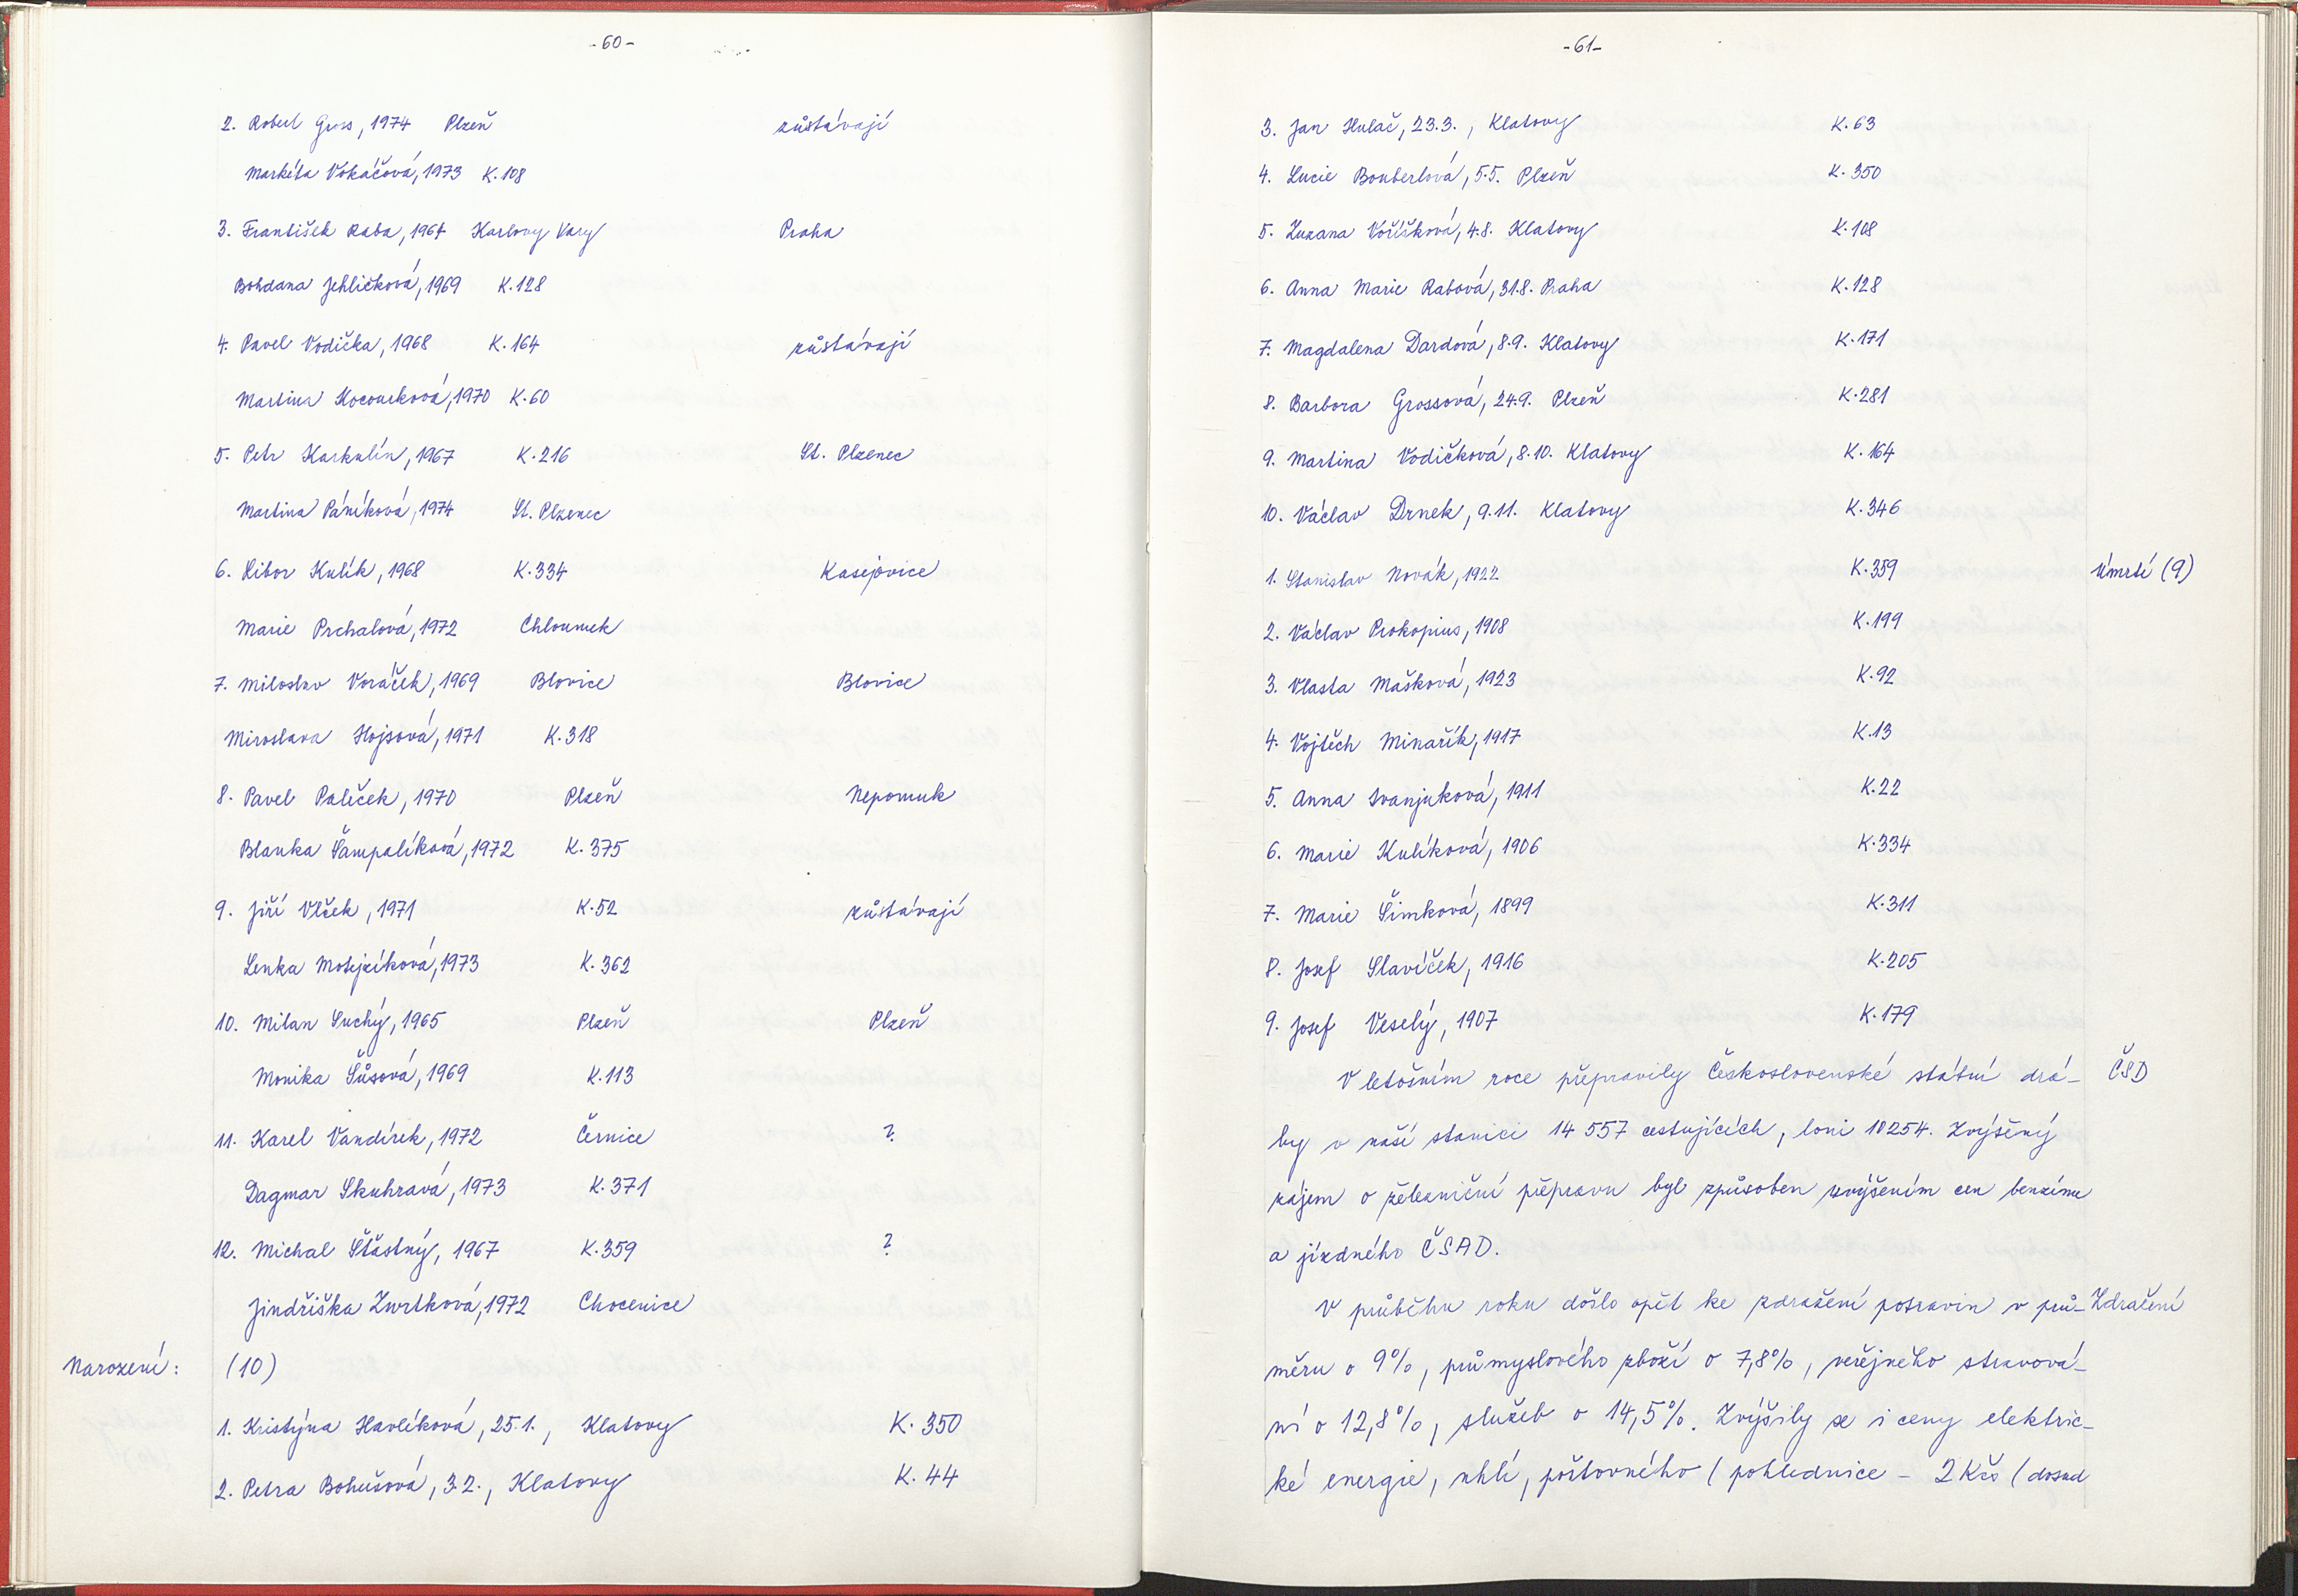 -60-
2. Robert Gross, 1974 Plzeň zůstávají
Markéta Vokáčová, 1973 K.108
3. František Raba, 1964 Karlovy Vary Praha
Bohdana Jehličková, 1969 K.128
4. Pavel Vodička, 1968 K.164 zůstávají
Martina Kocourková, 1970 K.60
5. Petr Karkulín, 1967 K.216 St. Plzenec
Martina Páníková, 1974 St. Plzenec
6. Libor Kulík, 1968 K.334 Kasejovice
Marie Prchalová, 1972 Chloumek
7. Miloslav Voráček, 1969 Blovice Blovice
Miroslava Hojsová, 1971 K.318
8. Pavel Paleček, 1970 Plzeň Nepomuk
Blanka Šampalíková, 1972 K.375
9. Jiří Vlček, 1971 K.52 zůstávají
Lenka Motejzíková, 1973 K.362
10. Milan Suchý, 1965 Plzeň Plzeň
Monika Šůsová, 1969 K.113
11. Karel Vandírek, 1972 Černice ?
Dagmar Skuhravá, 1973 K.371
12. Michal Šťastný, 1967 K.359 ?
Jindřiška Zwrtková, 1972 Chocenice
Narození: (10)
1. Kristýna Havlíková, 25.1., Klatovy K.350
2. Petra Bohušová, 3.2., Klatovy K.44
-61-
3. Jan Hulač, 23.3., Klatovy K.63
4. Lucie Bouberlová, 5.5. Plzeň K.350
5. Zuzana Voříšková, 4.8. Klatovy K.108
6. Anna Marie Rabová, 31.8. Praha K.128
7. Magdalena Dardová, 8.9. Klatovy K.171
8. Barbora Grossová, 24.9. Plzeň K.281
9. Martina Vodičková, 8.10. Klatovy K.164
10. Václav Drnek, 9.11. Klatovy K.346
1. Stanislav Novák, 1922 K.359 Úmrtí (9)
2. Václav Prokopius, 1908 K.199
3. Vlasta Mašková, 1923 K.92
4. Vojtěch Minařík, 1917 K.13
5. Anna Ivanjuková, 1911 K.22
6. Marie Kulíková, 1906 K.334
7. Marie Šimková, 1899 K.311
8. Josef Slavíček, 1916 K.205
9. Josef Veselý, 1907 K.179
V letošním roce přepravily Československé státní drá- ČSD
hy v naší stanici 14 557 cestujících, loni 10254. Zvýšený
zájem o železniční přepravu byl způsoben zvýšením cen benzínu
a jízdného ČSAD.
V průběhu roku došlo opět ke zdražení potravin v prů- Zdražení
měru o 9%, průmyslového zboží o 7,8%, veřejného stravová-
ní o 12,8%, služeb o 14,5%. Zvýšily se i ceny elektric-
ké energie, uhlí, poštovného (pohlednice - 2 Kčs (dosud